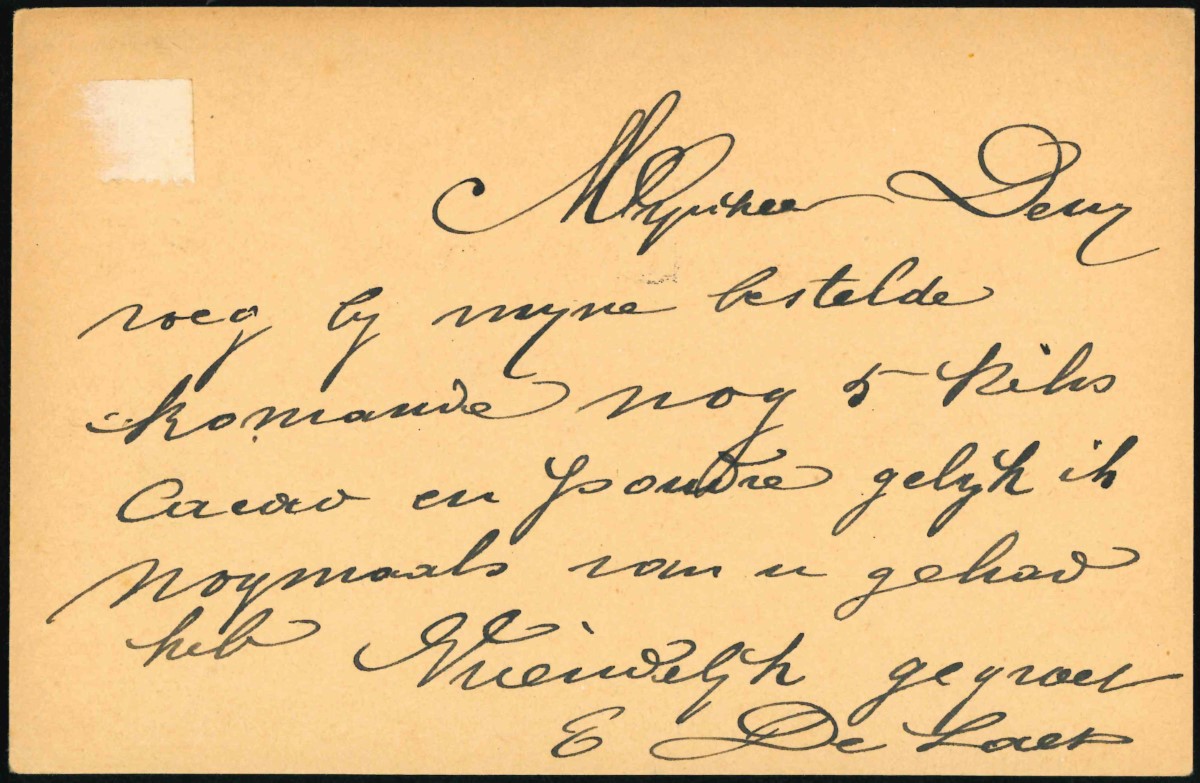 Mynheer Deny
voeg by myne bestelde
komande nog 5 kilos
Cacao en poudre gelyk ik
nogmaals van u gehad
heb Vriendelyk gegroet
E De Laet